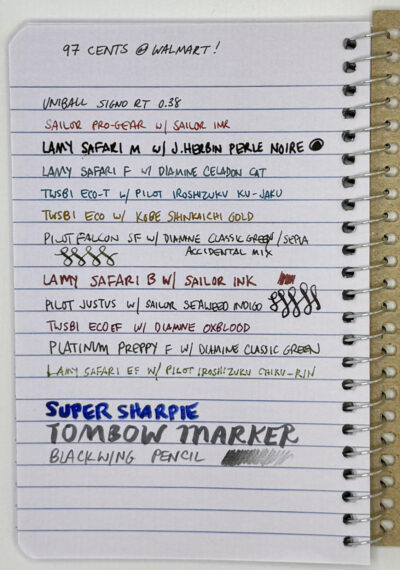 97 CENTS @ WALMART!
UNIBALL SIGNO RT 0.38
SAILOR PRO-GEAR W/ SAILOR INK
LAMY SAFARI M W/ J. HERBIN PERLE NOIRE
LAMY SAFARI F W/ DIAMINE CELADON CAT
TWSBI ECO-T W/ PILOT IROSHIZUKU KU-JAKU
TWSBI ECO W/ KOBE SHINKAICHI GOLD
PILOT FALCON SF W/ DIAMINE CLASSIC GREEN/SEPIA
ACCIDENTAL MIX
LAMY SAFARI B W/ SAILOR INK
PILOT JUSTUS W/ SAILOR SEAWEED INDIGO
TWSBI ECO EF W/ DIAMINE OXBLOOD
PLATINUM PREPPY F W/ DIAMINE CLASSIC GREEN
LAMY SAFARI EF W/ PILOT IROSHIZUKU CHIKU-RIN
SUPER SHARPIE
TOMBOW MARKER
BLACKWING PENCIL